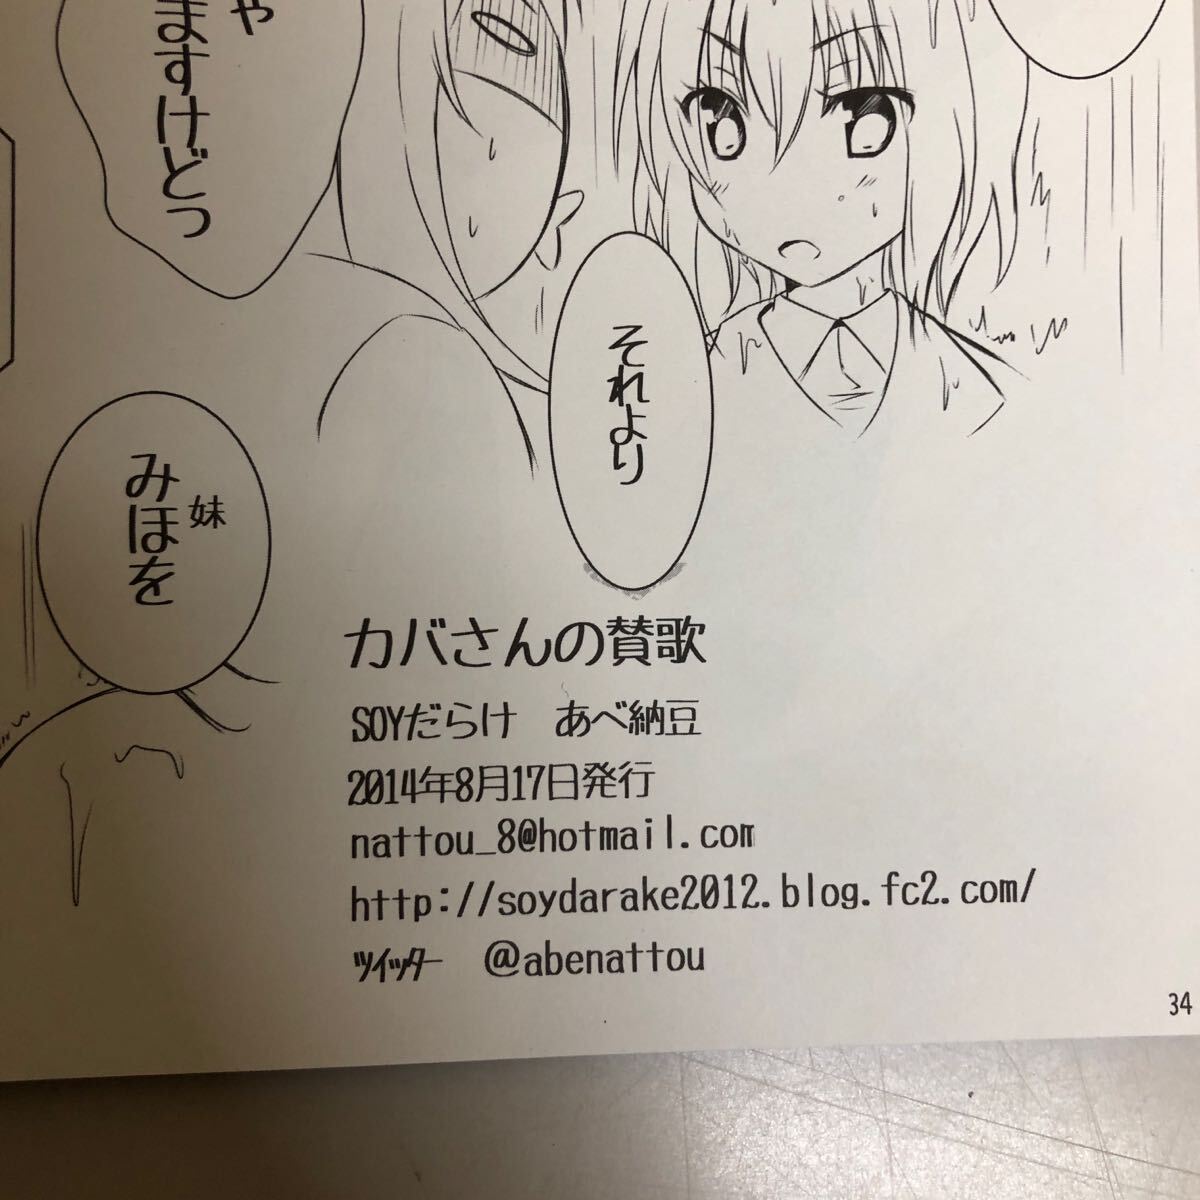 や
ますけどっ
それより
妹
みほを
カバさんの賛歌
SOYだらけ　あべ納豆
2014年8月17日発行
nattou_8@hotmail.com
http://soydarake2012.blog.fc2.com/
ツイッター　@abenattou
34